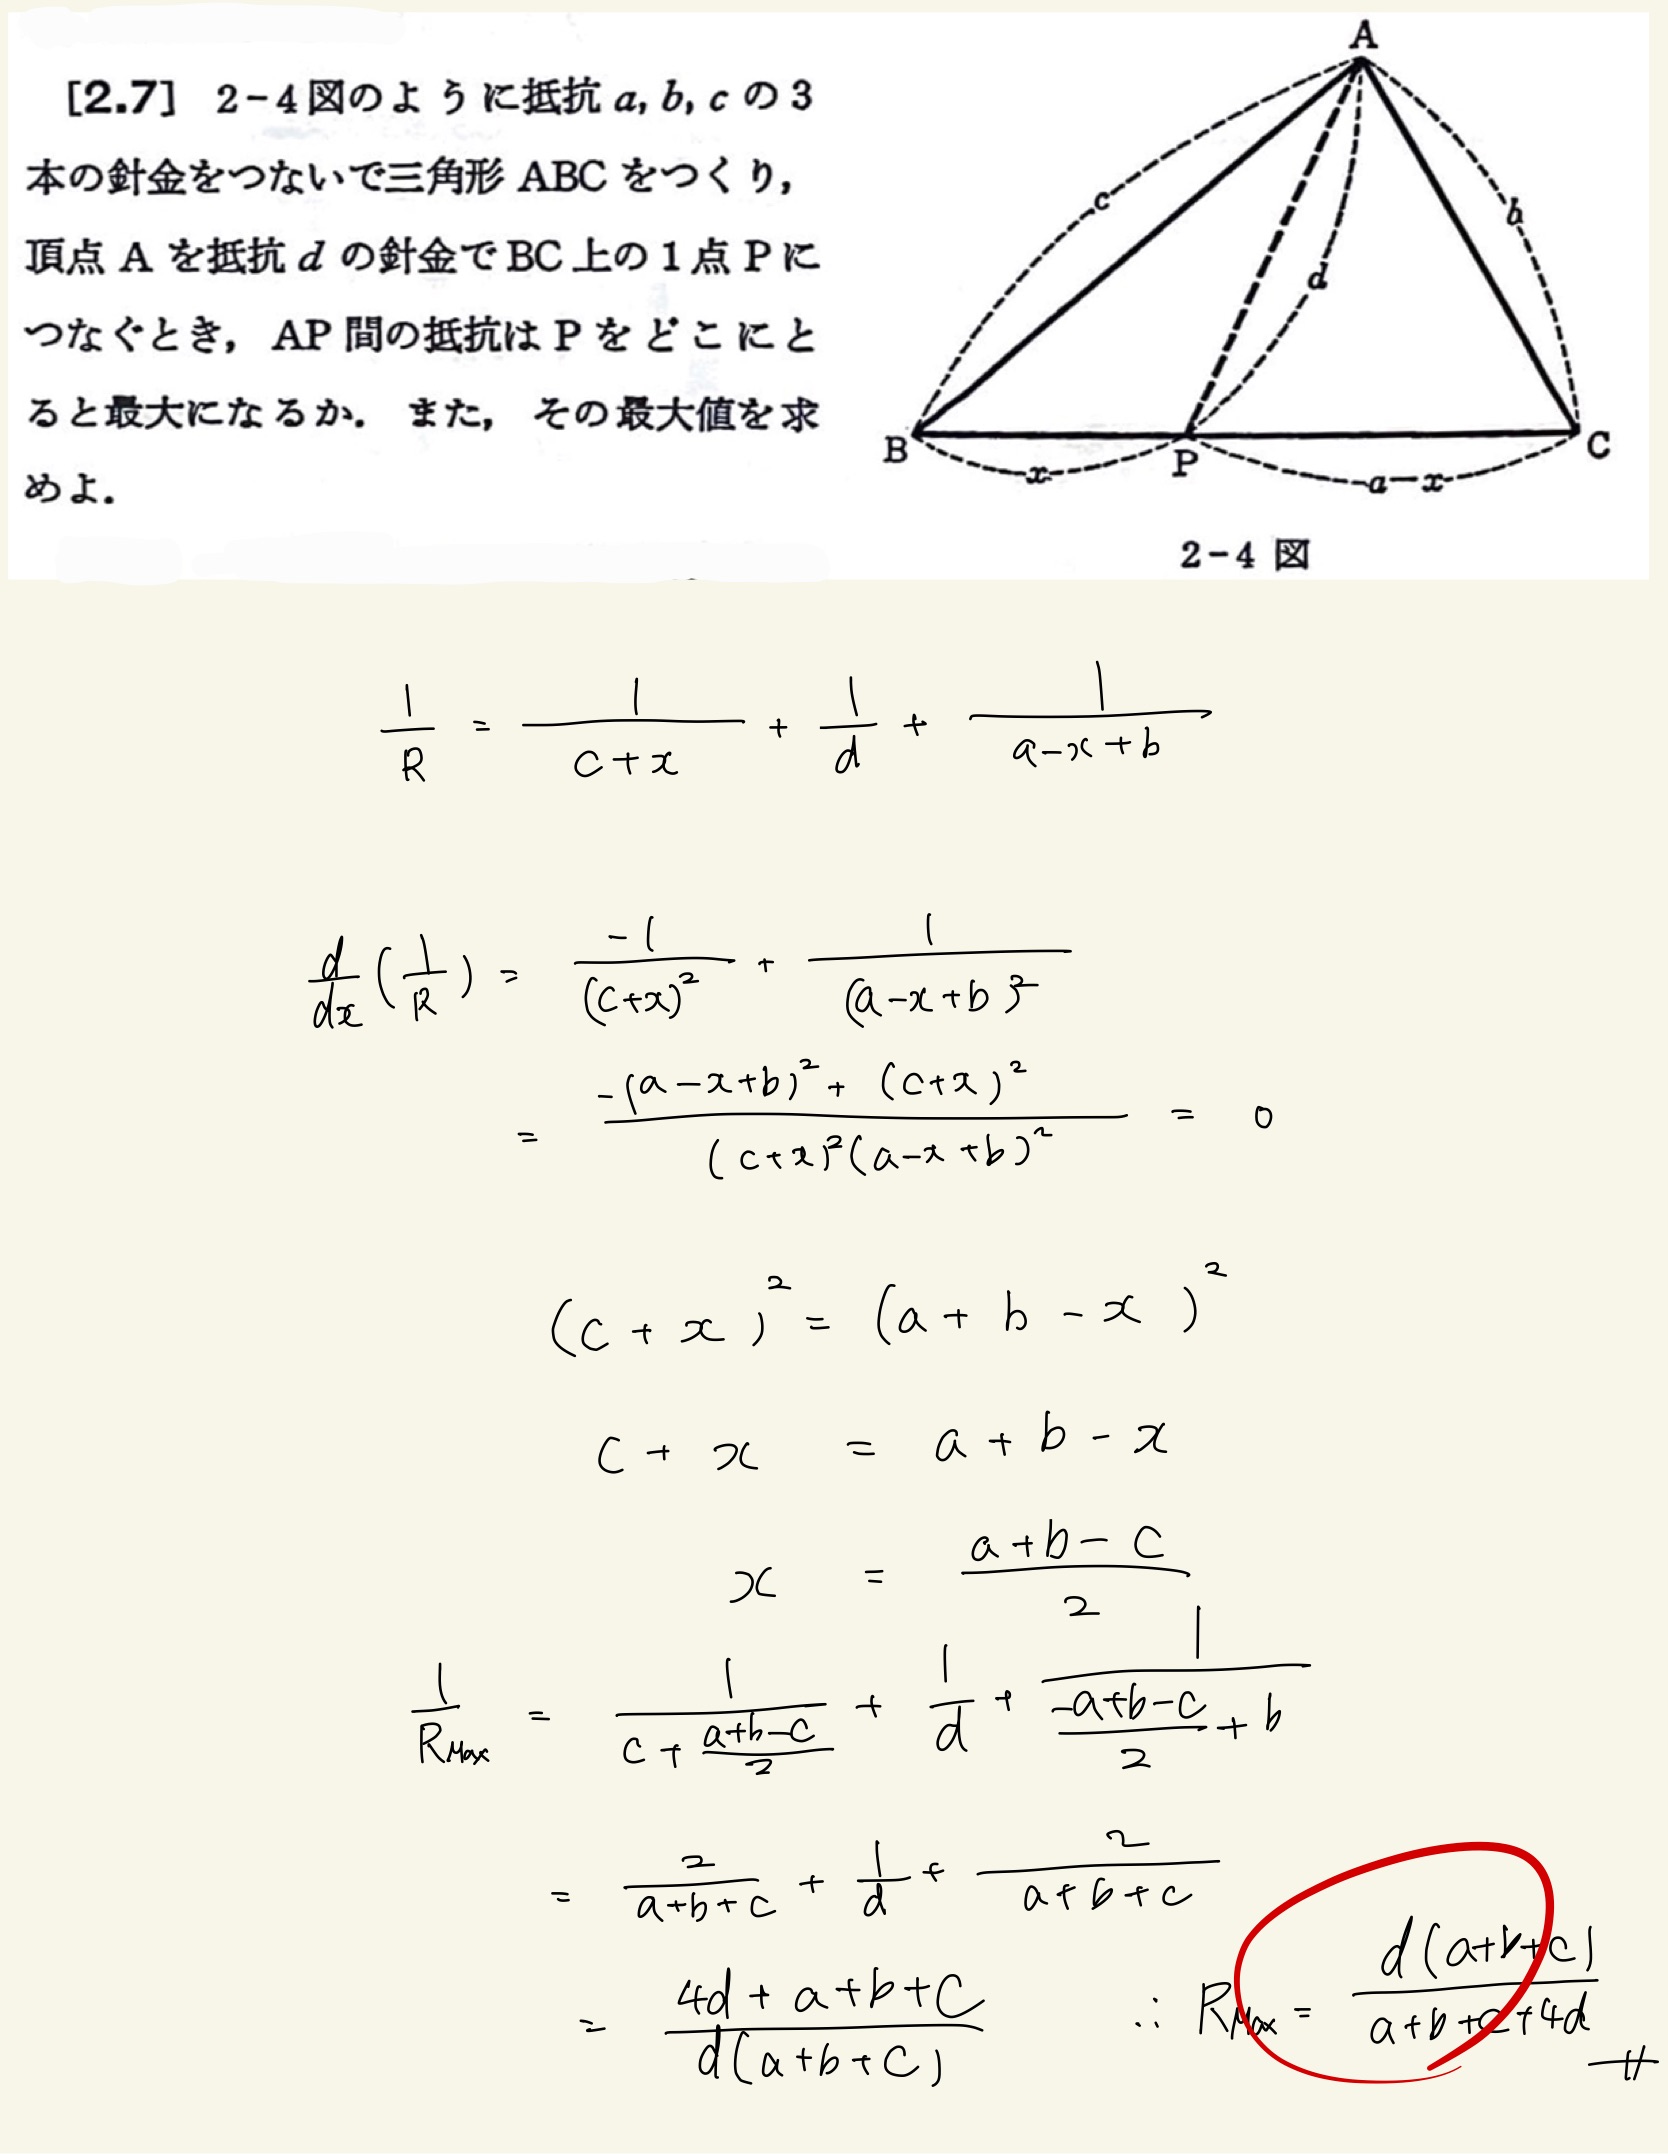 [2.7] 2-4図のように抵抗 a, b, c の3
本の針金をつないで三角形 ABC をつくり，
頂点 A を抵抗 d の針金で BC 上の1点 P に
つなぐとき， AP 間の抵抗は P をどこにと
ると最大になるか． また， その最大値を求
めよ．
A
c
b
d
B
P
C
x
a-x
2-4 図
1/R = 1/(c+x) + 1/d + 1/(a-x+b)
d/dx (1/R) = -1/(c+x)² + 1/(a-x+b)²
= (-(a-x+b)² + (c+x)²)/((c+x)²(a-x+b)²) = 0
(c+x)² = (a+b-x)²
c+x = a+b-x
x = (a+b-c)/2
1/R_Max = 1/(c+(a+b-c)/2) + 1/d + 1/((-a+b-c)/2+b)
= 2/(a+b+c) + 1/d + 2/(a+b+c)
= (4d+a+b+c)/(d(a+b+c)) ∴ R_Max = d(a+b+c)/(a+b+c+4d)